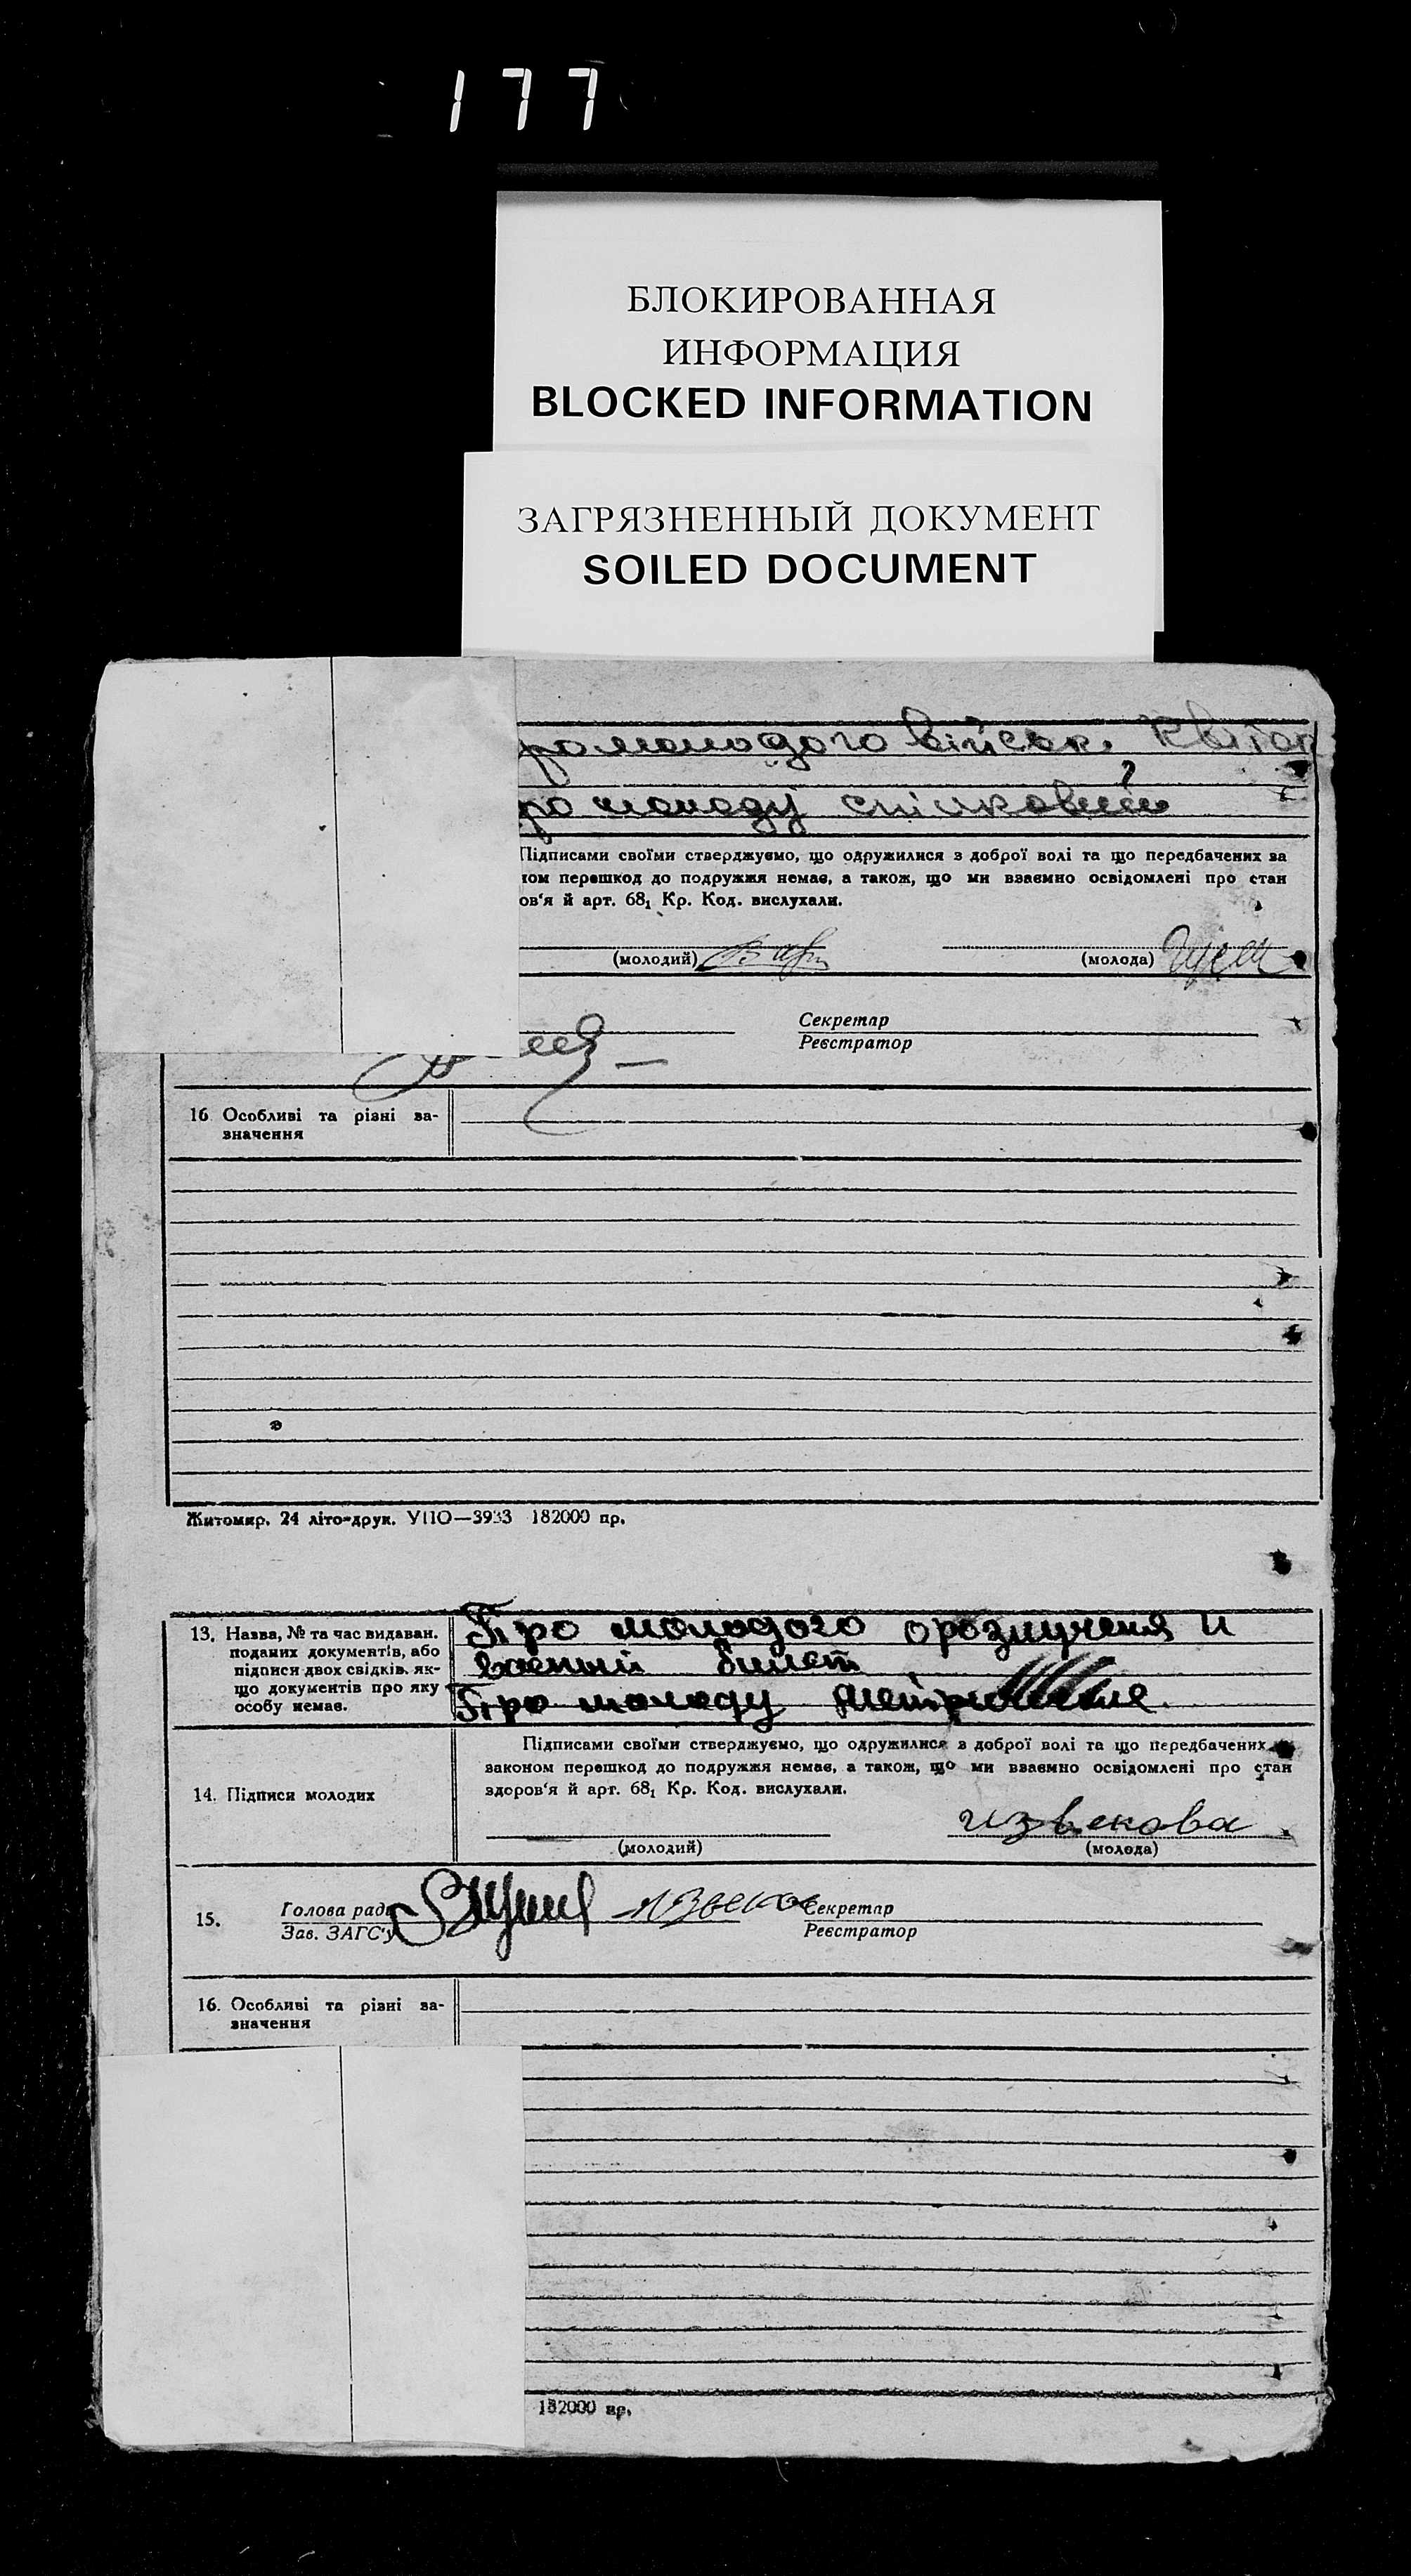 177
БЛОКИРОВАННАЯ
ИНФОРМАЦИЯ
BLOCKED INFORMATION
ЗАГРЯЗНЕННЫЙ ДОКУМЕНТ
SOILED DOCUMENT
ро молодого військ. Квиток
ро молоду
Підписами своїми стверджуємо, що одружилися з доброї волі та що передбачених за
ном перешкод до подружжя немає, а також, що ми взаємно освідомлені про стан
ов'я й арт. 68₁ Кр. Код. вислухали.
(молодий)
(молода)
Секретар
Реєстратор
16. Особливі та різні за-
значення
Житомир. 24 літо-друк. УПО—3933 182000 пр.
13. Назва, № та час видаван.
поданих документів, або
підписи двох свідків, як-
що документів про яку
особу немає.
Про молодого орозлученя и
военый билет
Про молоду
14. Підписи молодих
Підписами своїми стверджуємо, що одружилися з доброї волі та що передбачених
законом перешкод до подружжя немає, а також, що ми взаємно освідомлені про стан
здоров'я й арт. 68₁ Кр. Код. вислухали.
Извекова
(молодий)
(молода)
15.
Голова рад
Зав. ЗАГС'у
Секретар
Реєстратор
16. Особливі та різні за-
значення
182000 пр.